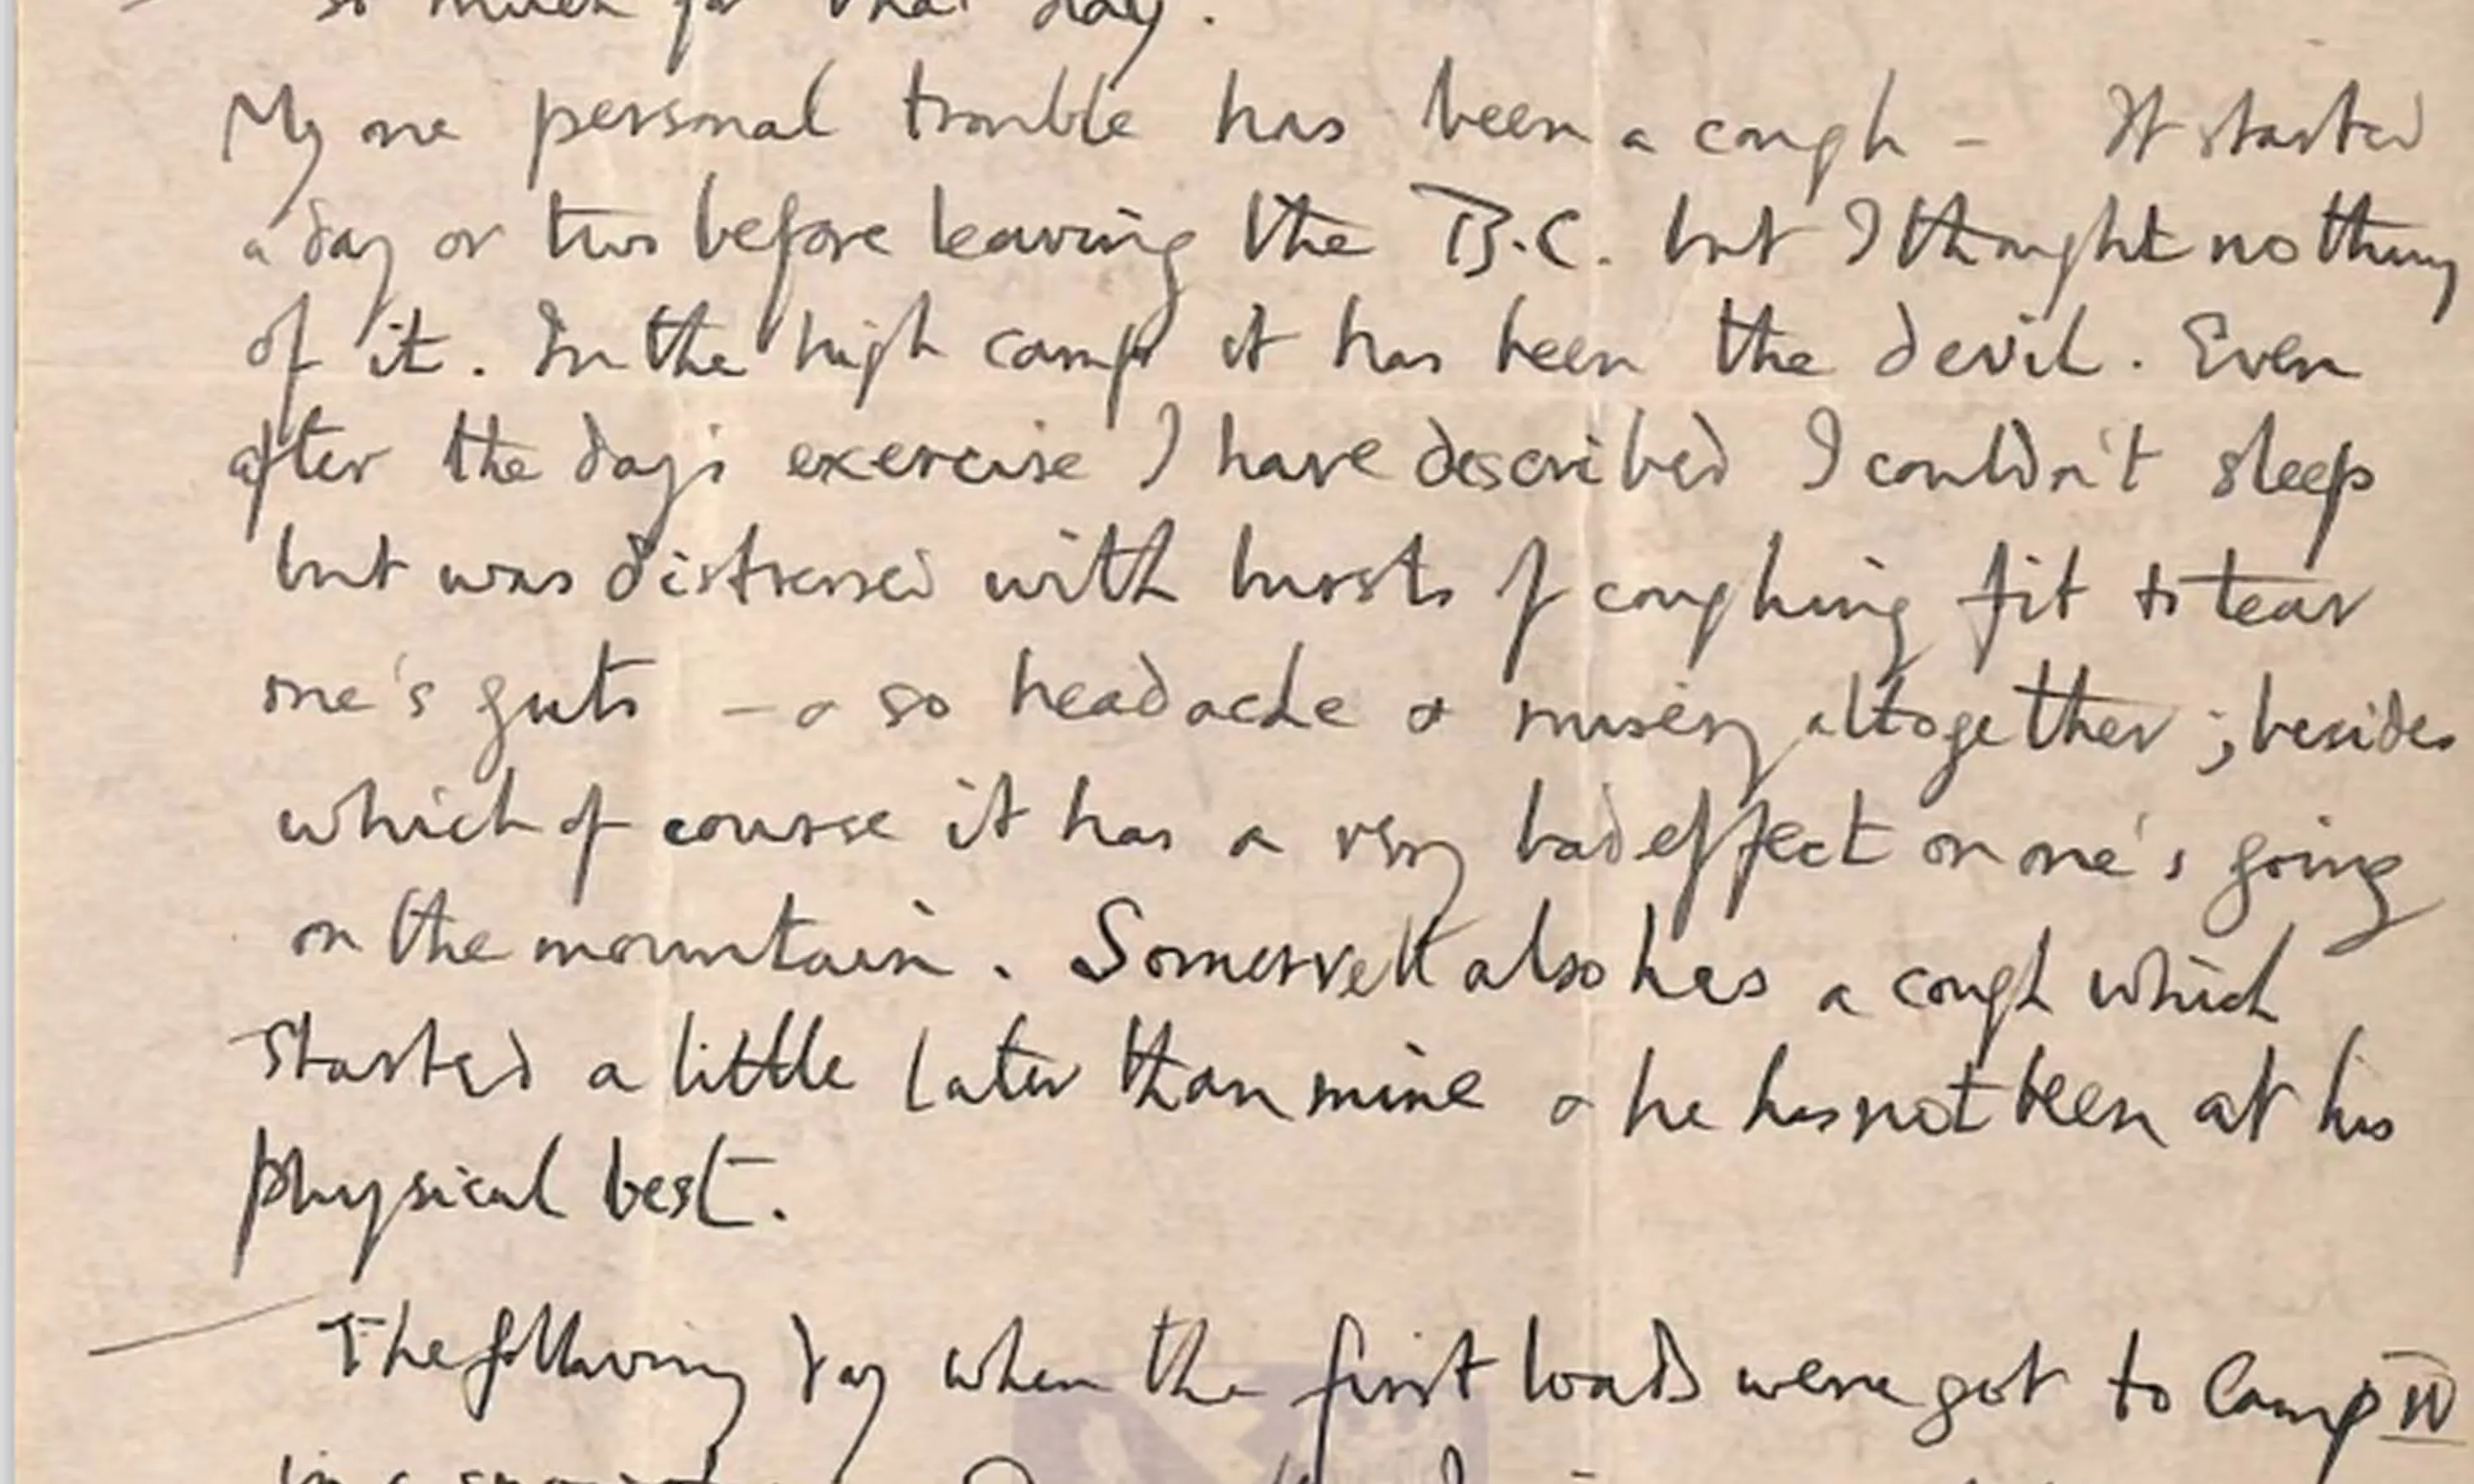 so much for that day.
My one personal trouble has been a cough – It started
a day or two before leaving the B.C. but I thought nothing
of it. In the high camp it has been the devil. Even
after the day's exercise I have described I couldn't sleep
but was distressed with bursts of coughing fit to tear
one's guts – & so headache & misery altogether; besides
which of course it has a very bad effect on one's going
on the mountain. Somervell also has a cough which
started a little later than mine & he has not been at his
physical best.
The following day when the first loads were got to Camp IV
in a